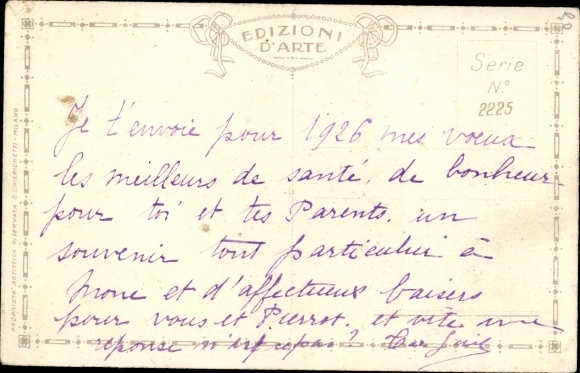 EDIZIONI
D'ARTE
Serie
Nº
2225
PROPRIETÀ ARTISTICA RISERVATA G. CHIERICHETTI - MILANO
Je t'envoie pour 1926 mes voeux
les meilleurs de santé, de bonheur
pour toi et tes Parents. un
souvenir tout particulier à
et d'affectueux baisers
pour vous et Pierrot. et vite une
reponse n'est ce pas?